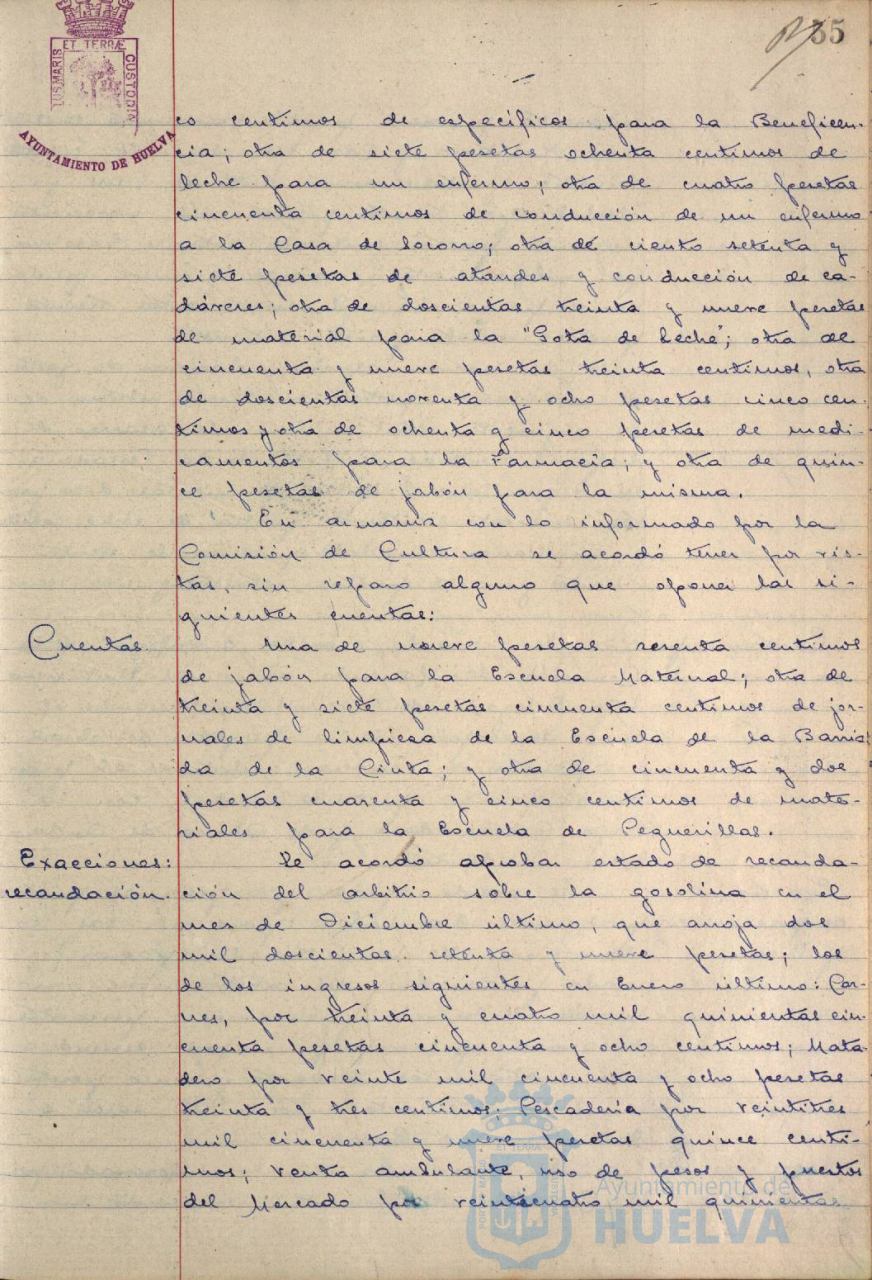 35
ET TERRÆ
TUS MARIS
CUSTODIA
AYUNTAMIENTO DE HUELVA
co centimos de específicos para la Beneficen-
cia; otra de siete pesetas ochenta centimos de
leche para un enfermo; otra de cuatro pesetas
cincuenta centimos de conducción de un enfermo
a la Casa de Socorro; otra de ciento setenta y
siete pesetas de ataudes y conducción de ca-
dáveres; otra de doscientas treinta y nueve pesetas
de material para la "Gota de Leche"; otra de
cincuenta y nueve pesetas treinta centimos, otra
de doscientas noventa y ocho pesetas cinco cen-
timos y otra de ochenta y cinco pesetas de medi-
camentos para la Farmacia; y otra de quin-
ce pesetas de jabón para la misma.
En armonia con lo informado por la
Comisión de Cultura se acordó tener por vis-
tas, sin reparo alguno que oponer las si-
guientes cuentas:
Cuentas.
Una de nueve pesetas sesenta centimos
de jabón para la Escuela Maternal; otra de
treinta y siete pesetas cincuenta centimos de jor-
nales de limpieza de la Escuela de la Barria-
da de la Cinta; y otra de cincuenta y dos
pesetas cuarenta y cinco centimos de mate-
riales para la Escuela de Peguerillas.
Exacciones:
recaudación.
Se acordó aprobar estado de recauda-
ción del arbitrio sobre la gasolina en el
mes de Diciembre último, que arroja dos
mil doscientas setenta y nueve pesetas; los
de los ingresos siguientes en Enero último: Car-
nes, por treinta y cuatro mil quinientas cin-
cuenta pesetas cincuenta y ocho centimos; Mata-
dero por veinte mil cincuenta y ocho pesetas
treinta y tres centimos. Pescadería por veintitres
mil cincuenta y nueve pesetas quince centi-
mos; venta ambulante, uso de pesos y puestos
del Mercado por veinticuatro mil quinientas
Ayuntamiento de
HUELVA